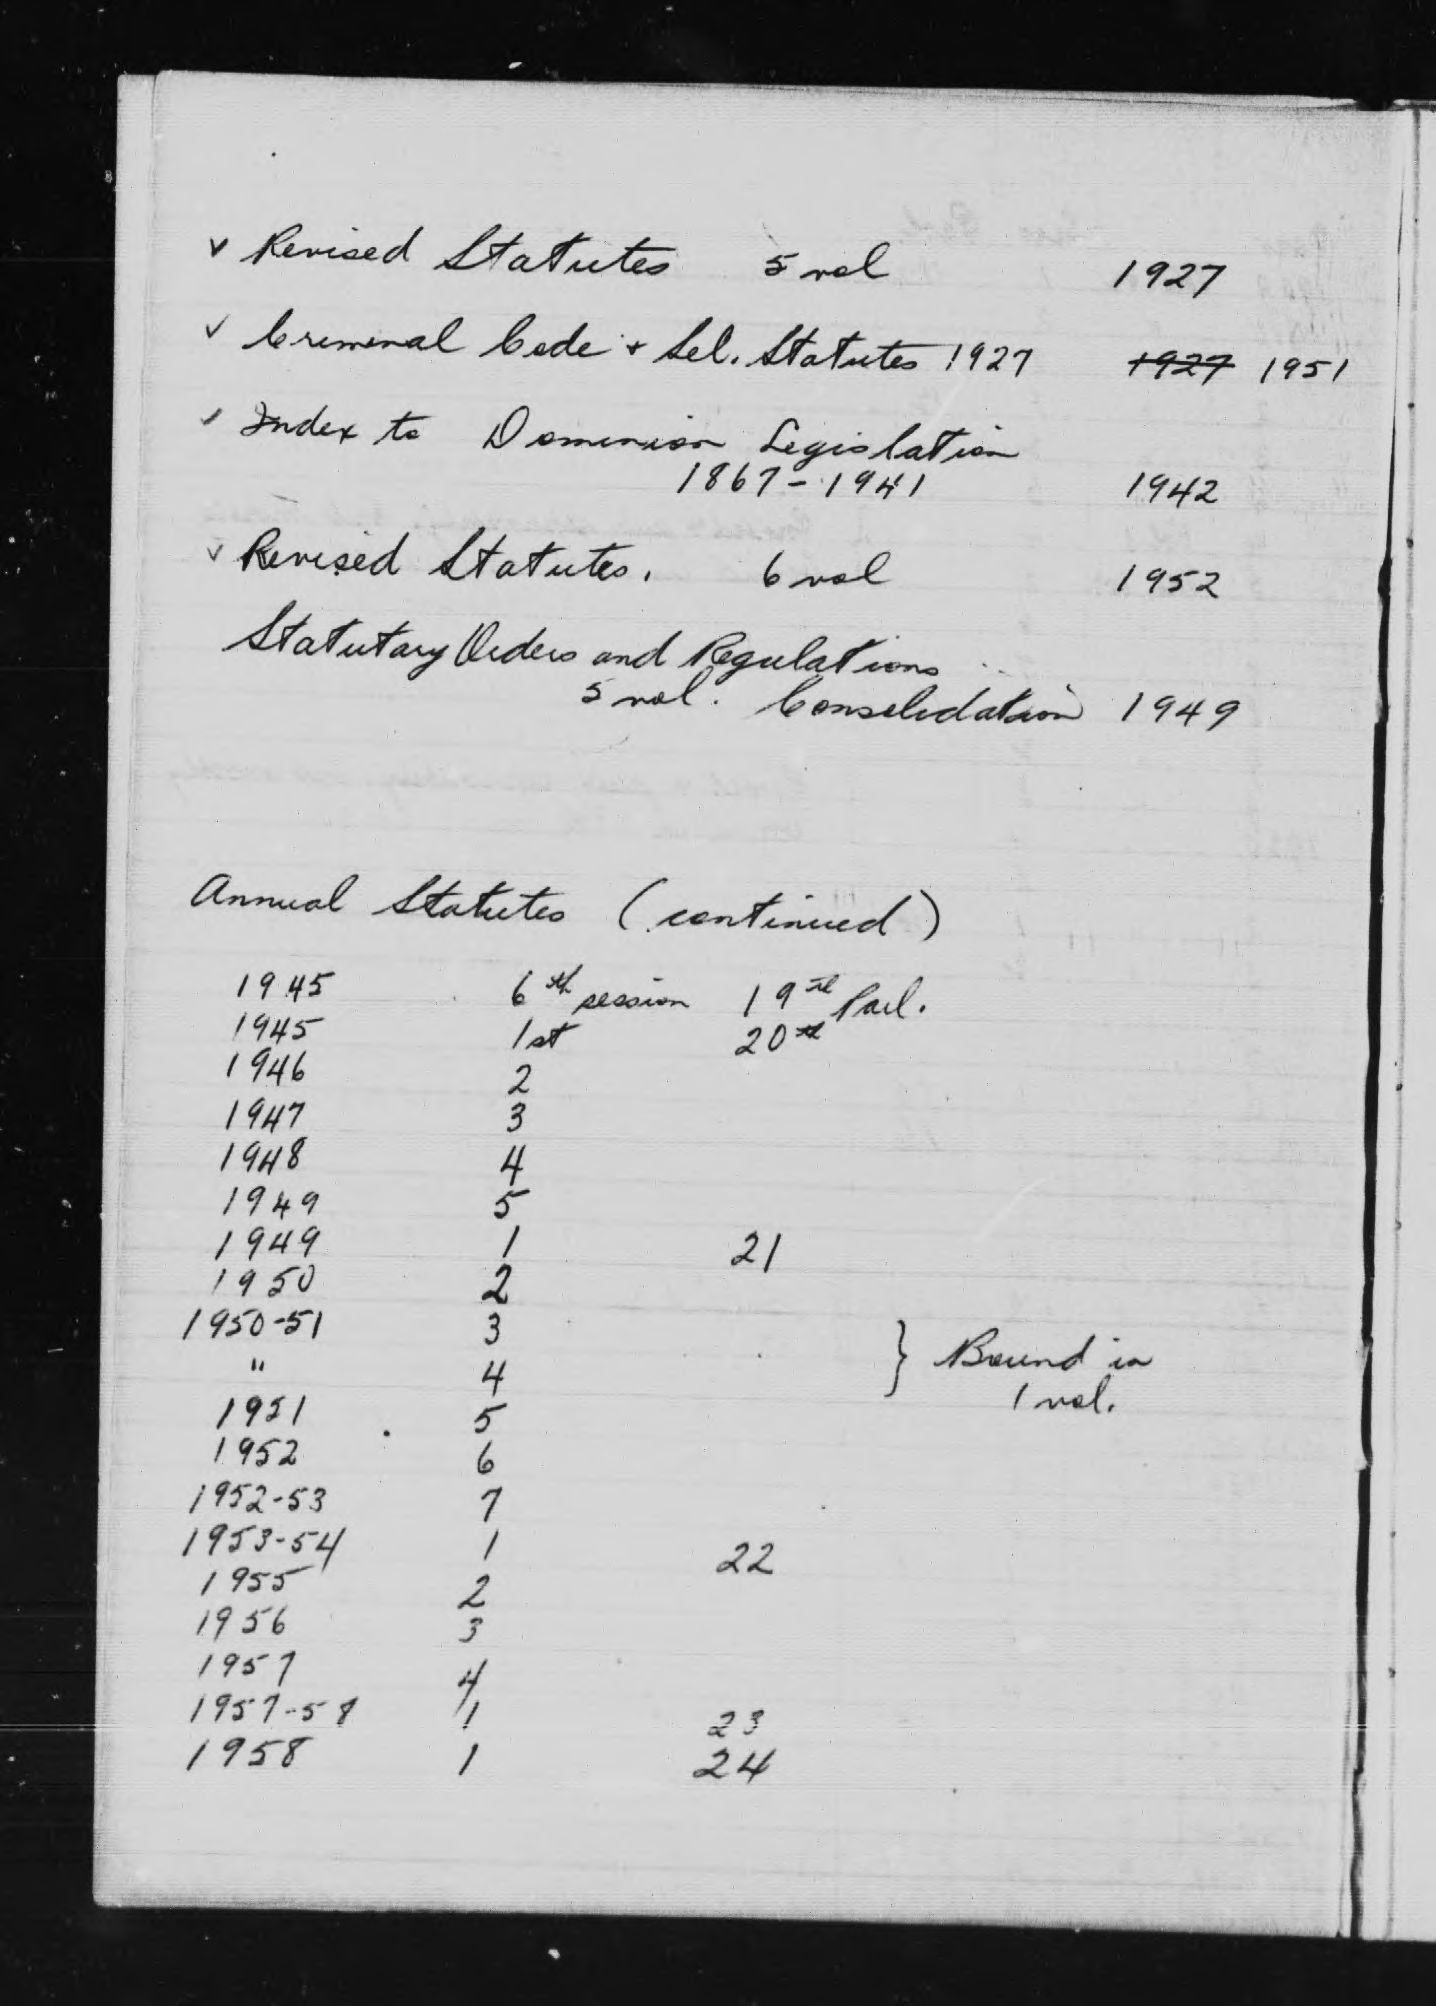 v Revised Statutes 5 vol 1927
v Criminal Code + Sel. Statutes 1927 ~~1927~~ 1951
v Index to Dominion Legislation
1867-1941 1942
v Revised Statutes. 6 vol 1952
Statutary Orders and Regulations
5 vol. Consolidation 1949
Annual Statutes (continued)
1945 6th session 19th Parl.
1945 1st 20th
1946 2
1947 3
1948 4
1949 5
1949 1 21
1950 2
1950-51 3 } Bound in
" 4 1 vol.
1951 5
1952 6
1952-53 7
1953-54 1 22
1955 2
1956 3
1957 4
1957-58 1 23
1958 1 24